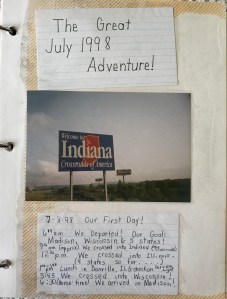 The Great
July 1998
Adventure!
Welcome to
Indiana
Crossroads of America
7-3-98 Our First Day!
6 am We Departed! Our Goal:
Madison, Wisconsin & 5 states!
We crossed into Indiana
12 p.m. We crossed into Illinois -
4 states so far...
Lunch in Danville, IL
3:45 We crossed into Wisconsin!
6:30 We arrived in Madison!